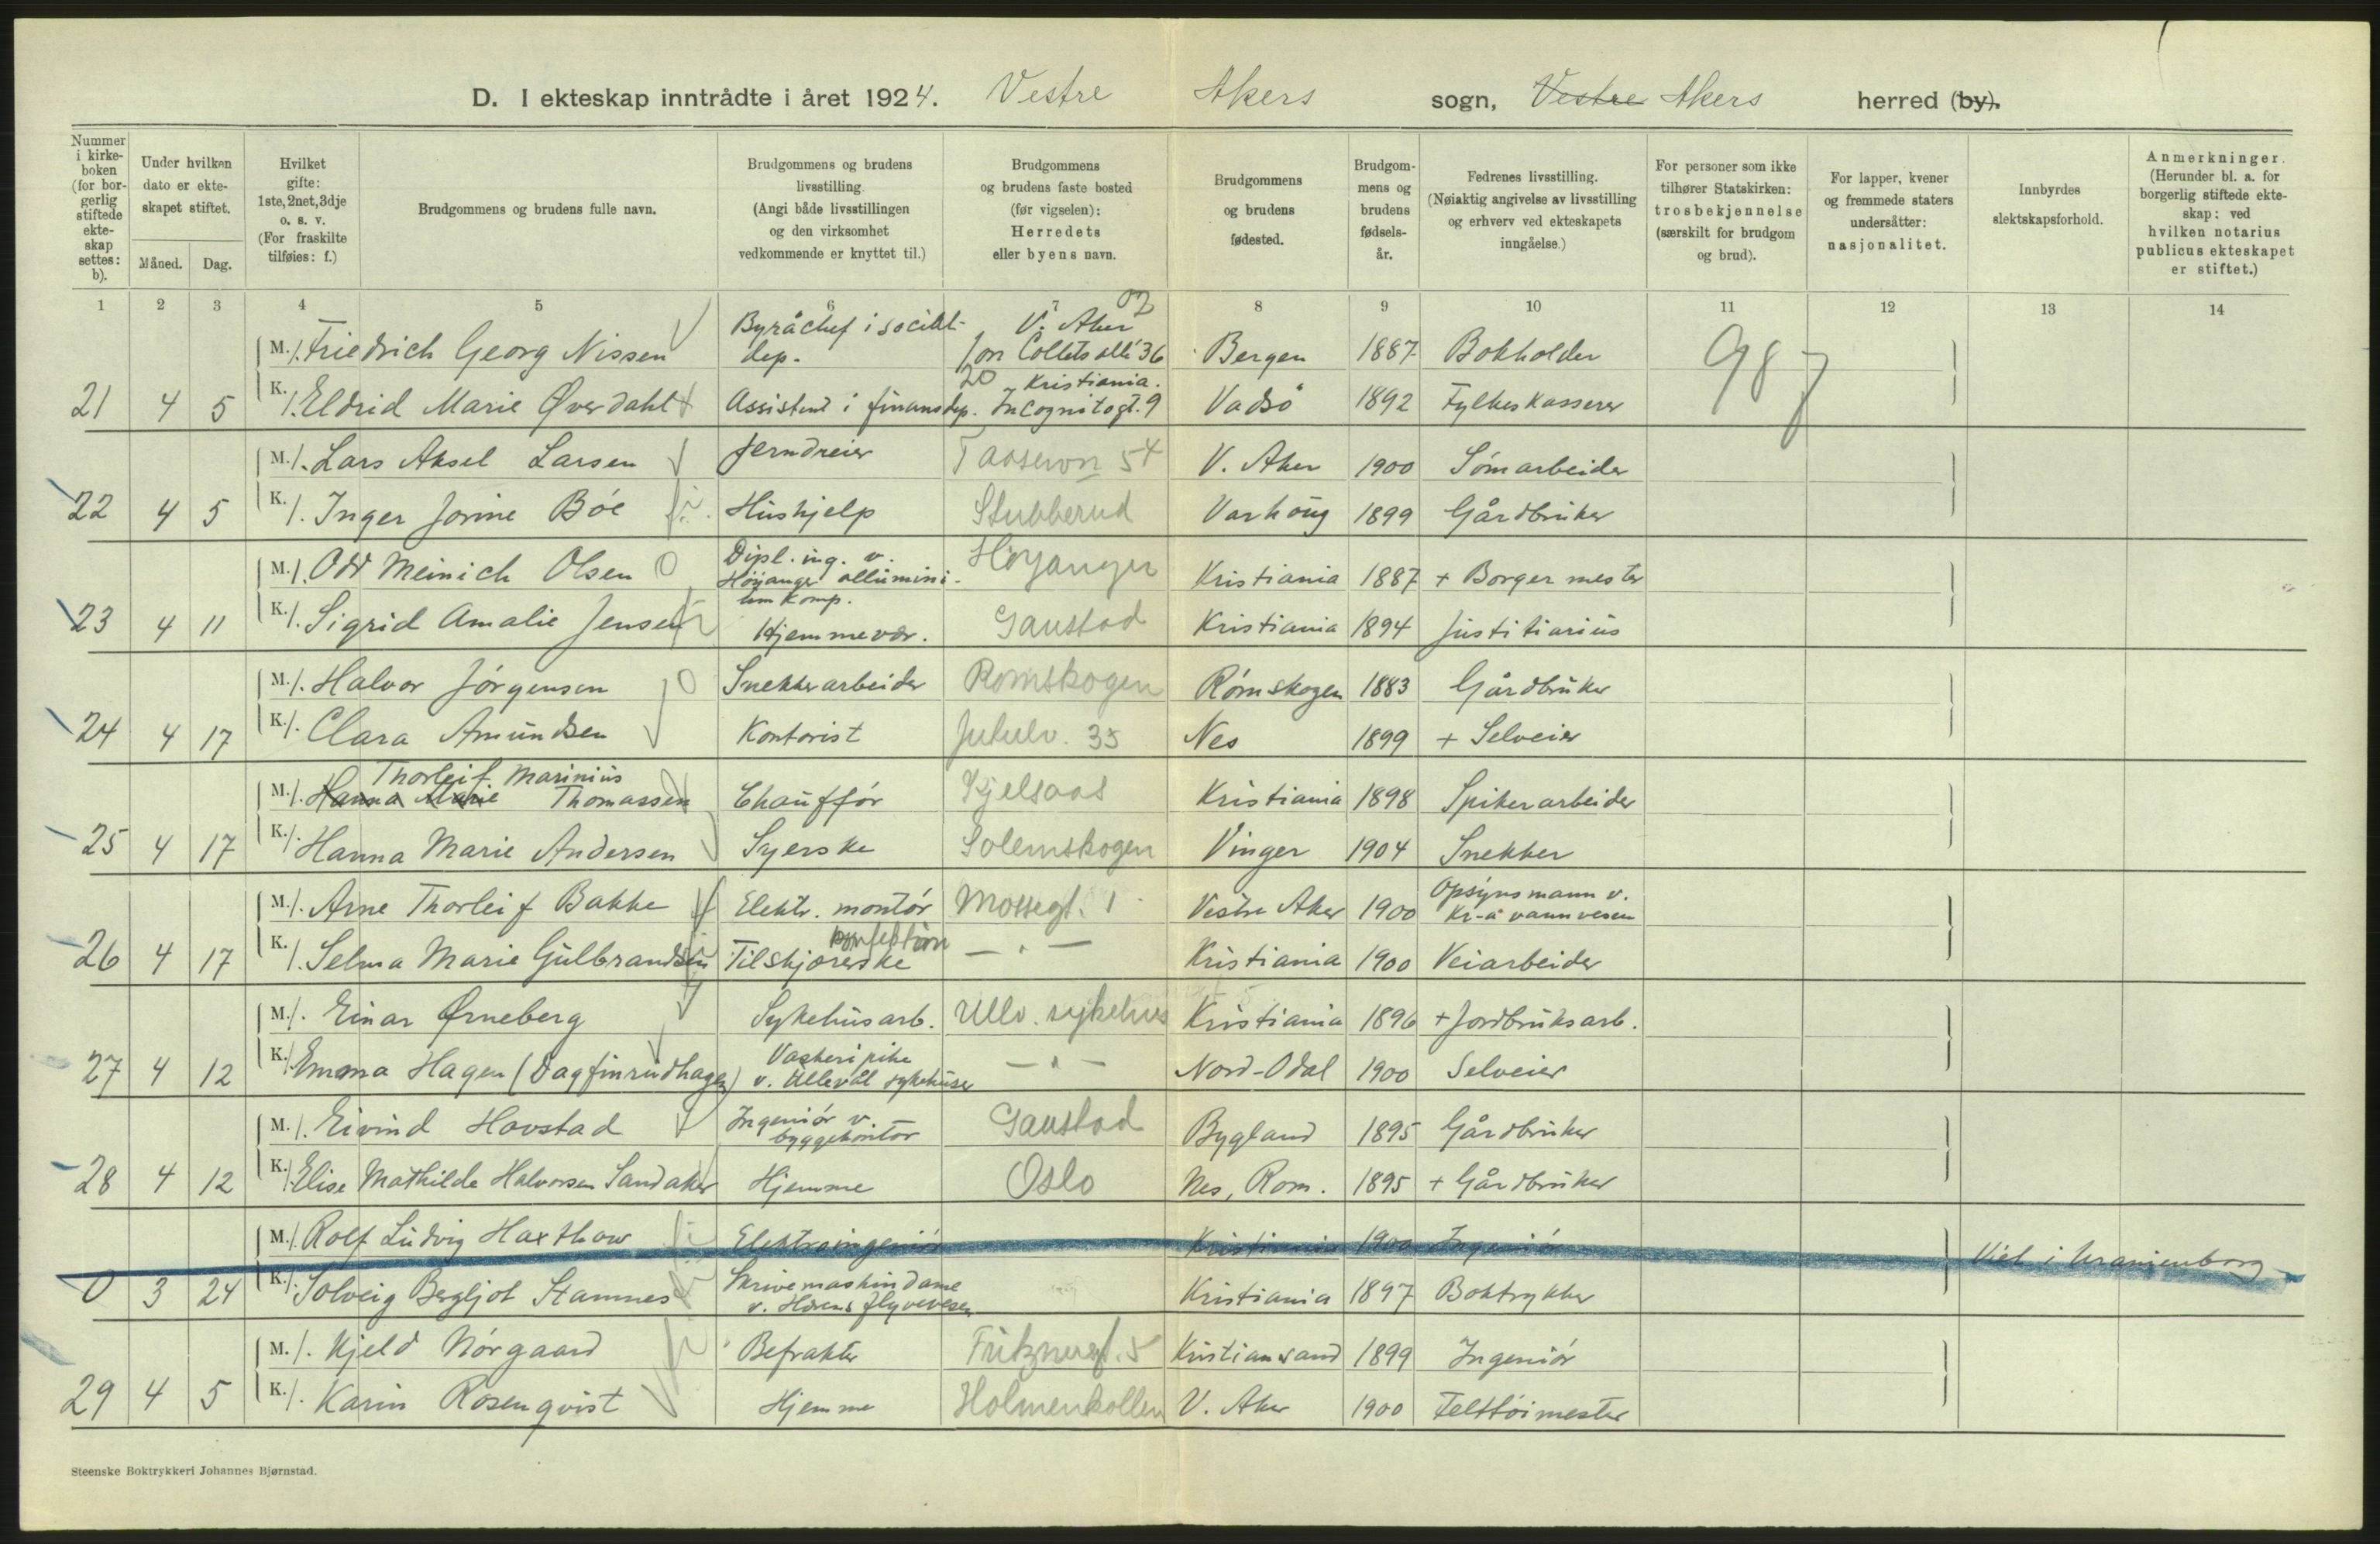 D. I ekteskap inntrådte i året 1924. Vestre Akers sogn, Vestre Akers herred (by).
Nummer i kirkeboken (for borgerlig stiftede ekteskap settes: b).
Under hvilken dato er ekteskapet stiftet.
Måned. Dag.
Hvilket gifte: 1ste, 2net, 3dje o. s. v. (For fraskilte tilføies: f.)
Brudgommens og brudens fulle navn.
Brudgommens og brudens livsstilling. (Angi både livsstillingen og den virksomhet vedkommende er knyttet til.)
Brudgommens og brudens faste bosted (før vigselen): Herredets eller byens navn.
Brudgommens og brudens fødested.
Brudgommens og brudens fødselsår.
Fedrenes livsstilling. (Nøiaktig angivelse av livsstilling og erhverv ved ekteskapets inngåelse.)
For personer som ikke tilhører Statskirken: trosbekjennelse (særskilt for brudgom og brud).
For lapper, kvener og fremmede staters undersåtter: nasjonalitet.
Innbyrdes slektskapsforhold.
Anmerkninger. (Herunder bl. a. for borgerlig stiftede ekteskap: ved hvilken notarius publicus ekteskapet er stiftet.)
1 2 3 4 5 6 7 8 9 10 11 12 13 14
M. 1. Friedrich Georg Nissen Byråchef i socialdep. V. Aker Jon Collets allé 36 Bergen 1887 Bokholder 987
21 4 5 K. 1. Eldrid Marie Øverdahl Assistent i finansdep. 20 Kristiania. Incognitogt. 9 Vadsö 1892 Fylkeskasserer
M. 1. Lars Aksel Larsen Jerndreier Taasenvn 54 V. Aker 1900 Tömarbeider
22 4 5 K. 1. Inger Jorine Böe Hushjelp Stubberud Varhoug 1899 Gårdbruker
M. 1. Odd Meinich Olsen Dipl. ing. v. Höyanger alluminium Komp. Höyanger Kristiania 1887 + Borgermester
23 4 11 K. 1. Sigrid Amalie Jensen Hjemmevær. Gaustad Kristiania 1894 Justitiarius
M. 1. Halvor Jörgensen Snekkerarbeider Romskogen Römskogen 1883 Gårdbruker
24 4 17 K. 1. Clara Amundsen Kontorist Jutulv. 35 Nes 1899 + Selveier
M. 1. Hanna Marie Thorleif Marinius Thomassen Chaufför Kjelsaas Kristiania 1898 Spikerarbeider
25 4 17 K. 1. Hanna Marie Andersen Syerske Solemskogen Vinger 1904 Snekker
M. 1. Arne Thorleif Bakke Elektr. montör Mossegt. 1 Vestre Aker 1900 Opsynsmann v. Kr-a vannvesen
26 4 17 K. 1. Selma Marie Gulbrandsen Tilskjærerske konfektion — " — Kristiania 1900 Veiarbeider
M. 1. Einar Ørneberg Sykehusarb. Ullv. sykehus Kristiania 1896 + Jordbruksarb.
27 4 12 K. 1. Emma Hagen (Dagfinrudhagen) Vaskeripike v. Ullevål sykehuser — " — Nord-Odal 1900 Selveier
M. 1. Eivind Hovstad Ingeniör v. byggekontor Gaustad Bygland 1895 Gårdbruker
28 4 12 K. 1. Elise Mathilde Halvorsen Sandaker Hjemme Oslo Nes, Rom. 1895 + Gårdbruker
M. 1. Rolf Ludvig Haxthow Elektroingeniör Kristiania 1900 Ingeniör Viet i Uranienborg
0 3 24 K. 1. Solveig Bergljot Stamnes Skrivemaskindame v. Hærens flyvevesen Kristiania 1897 Boktrykker
M. 1. Kjeld Nörgaard Befrakter Fritznersgt. 5 Kristiansand 1899 Ingeniör
29 4 5 K. 1. Karin Rosenqvist Hjemme Holmenkollen V. Aker 1900 Felttöimester
Steenske Boktrykkeri Johannes Bjørnstad.